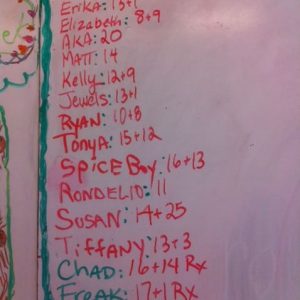 Erika: 13+1
Elizabeth: 8+9
AKA: 20
MATT: 14
Kelly: 12+9
Jewels: 13+1
RYAN: 10+8
Tonya: 15+12
SPICE Boy: 16+13
RONDELIO: 11
SUSAN: 14+25
TIFFANY: 13+3
CHAD: 16+14 Rx
FREAK: 17+1 Rx